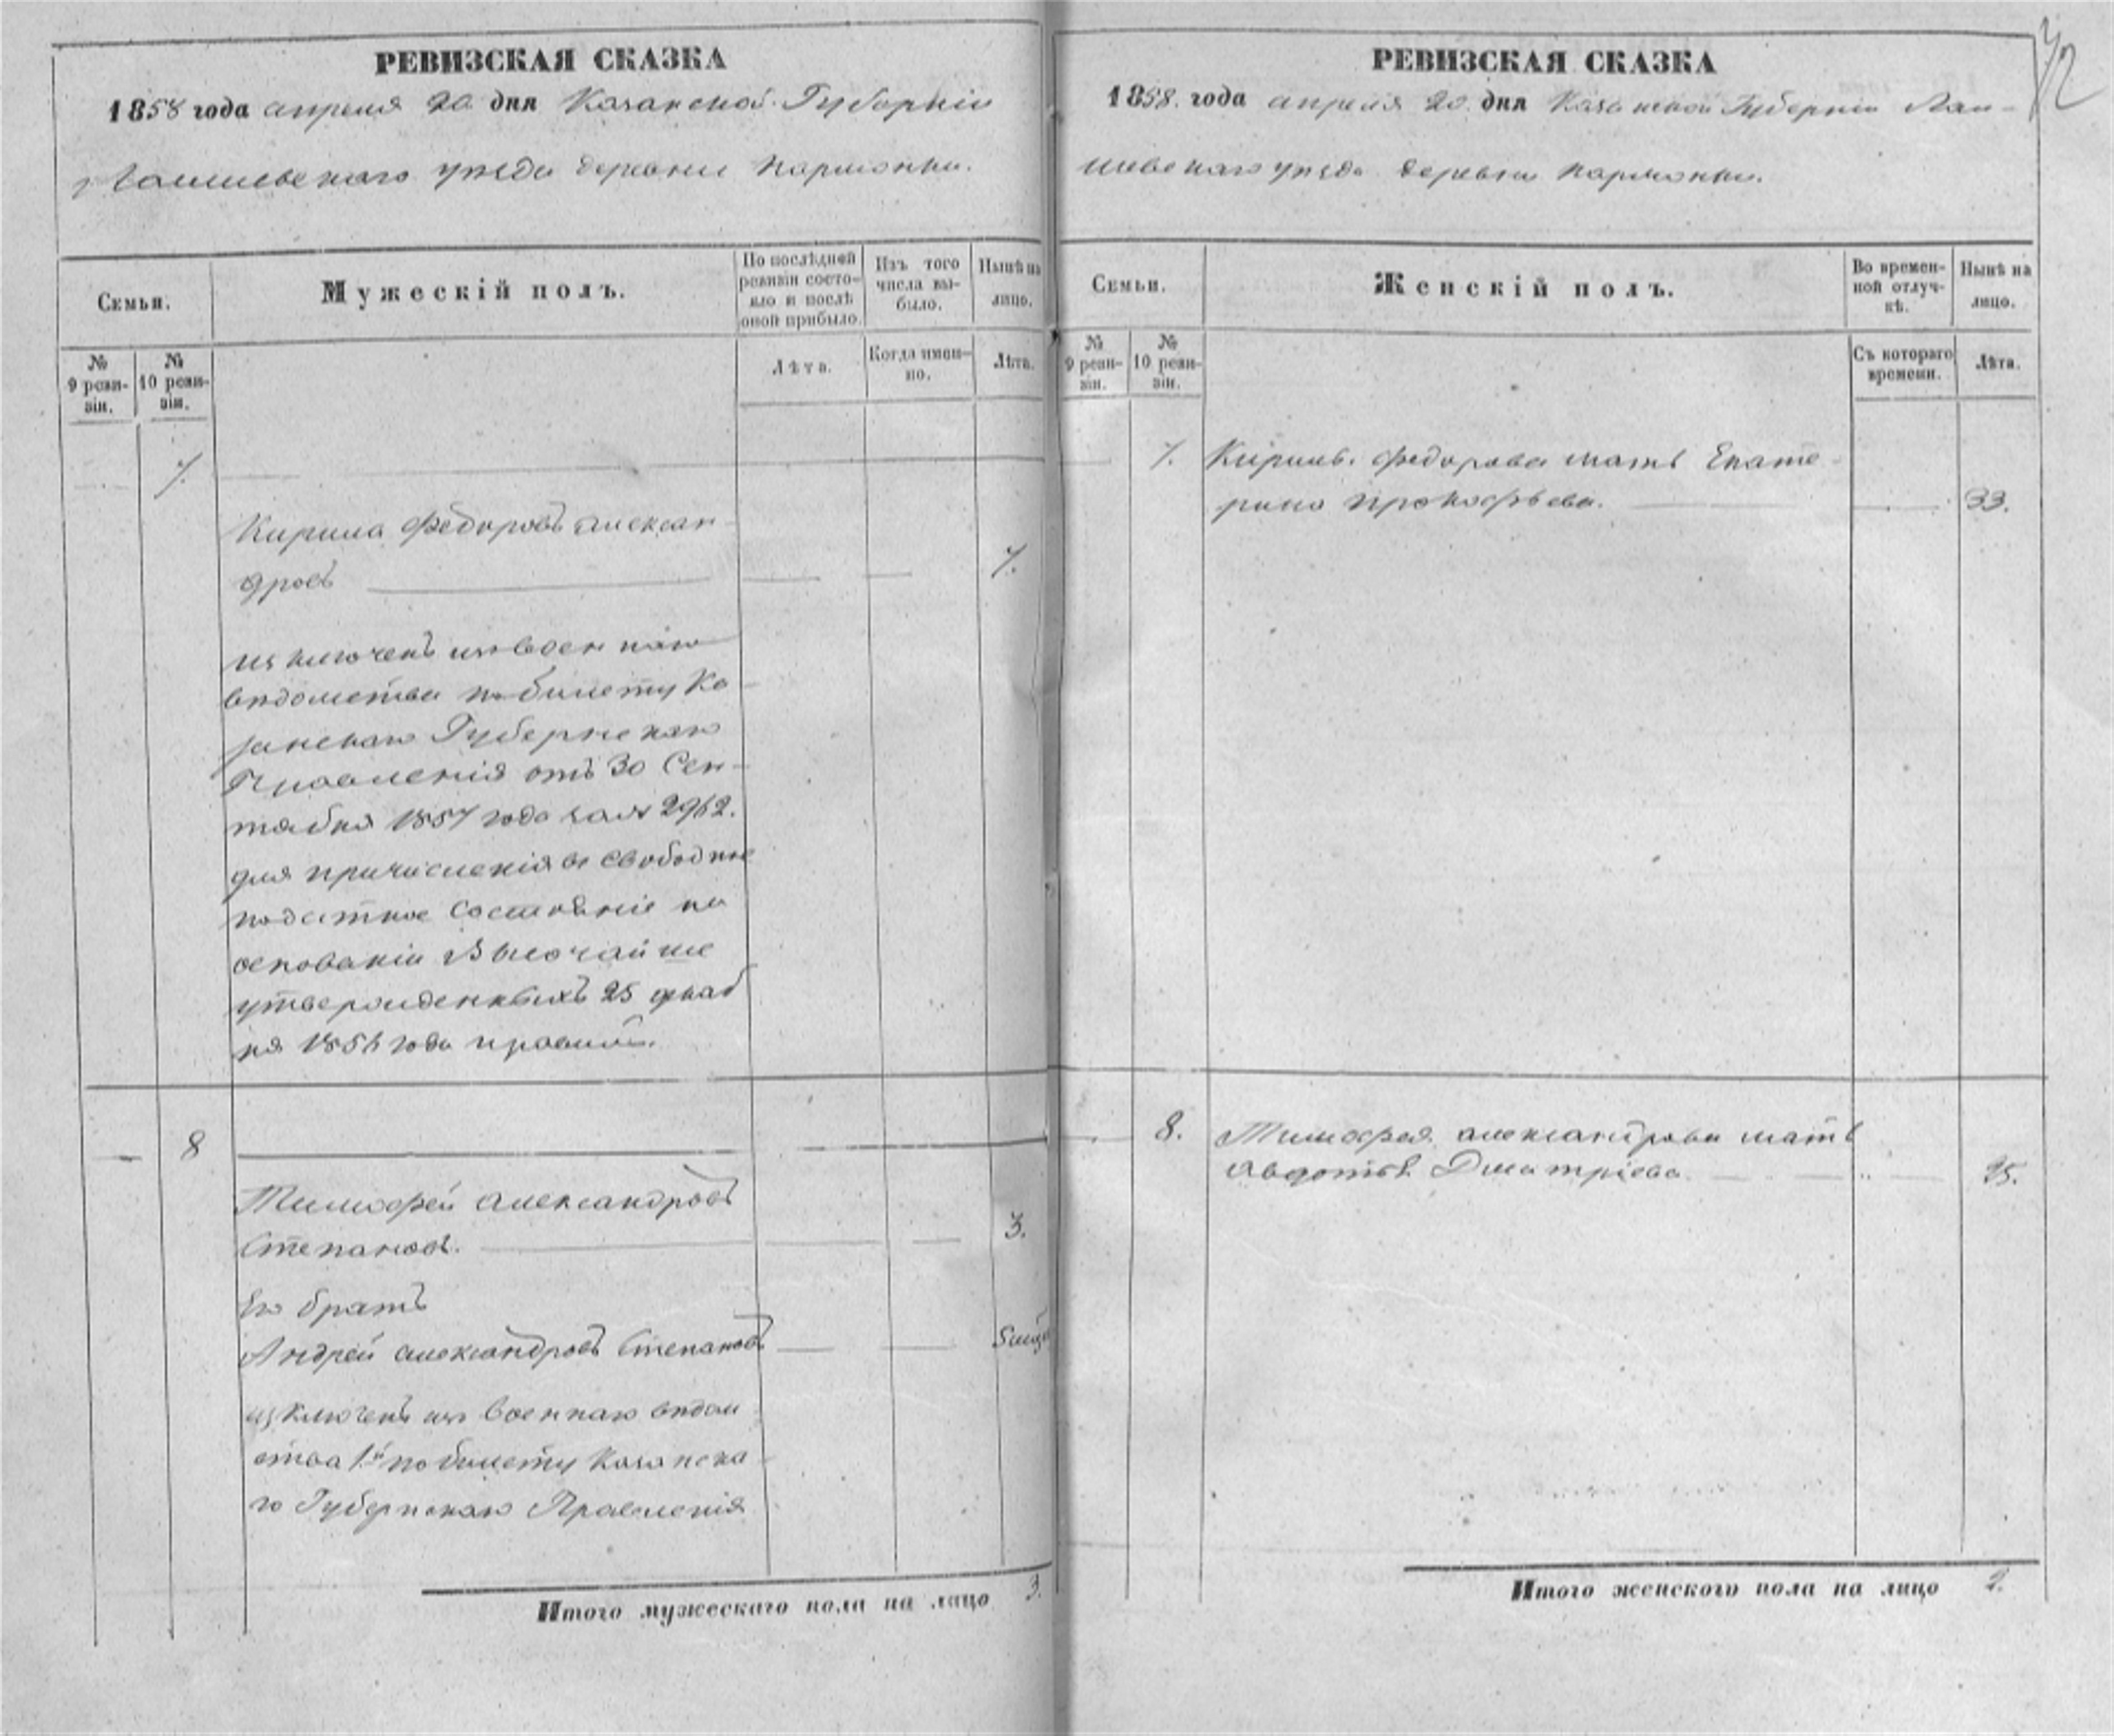 РЕВИЗСКАЯ СКАЗКА
1858 года апреля 20 дня Казанской Губерніи
Лаишевскаго уѣзда деревни Кармонки.
Семьи.
Мужескій полъ.
По послѣдней ревизіи состояло и послѣ оной прибыло.
Изъ того числа выбыло.
Нынѣ на лицо.
№ 9 ревизіи.
№ 10 ревизіи.
Лѣта.
Когда именно.
Лѣта.
7.
Кирила Федоровъ Александ
дровъ
7.
изключенъ изъ военнаго
вѣдомства по билету Ка
занскаго Губернскаго
Правленія отъ 30 Сен-
тября 1857 года за № 2962.
для причисленія въ свободное
податное состояніе на
основаніи Высочайше
утвержденныхъ 25 декаб
ря 1856 года правилъ.
8
Тимофей Александровъ
Степановъ.
3.
Его братъ
Андрей Александровъ Степановъ
5 мѣс
изключенъ изъ военнаго вѣдом
ства 1й по билету Казанска
го Губернскаго Правленія
Итого мужескаго пола на лицо 3.
РЕВИЗСКАЯ СКАЗКА
1858. года апреля 20. дня Казанской Губерніи Лаи-
шевскаго уѣзда деревни Кармонки.
Семьи.
Женскій полъ.
Во временной отлучкѣ.
Нынѣ на лицо.
№ 9 ревизіи.
№ 10 ревизіи.
Съ котораго времени.
Лѣта.
7.
Кирилы Федорова мать Екате-
рина Прокофьева.
33.
8.
Тимофея Александрова мать
Авдотья Дмитріева
25.
Итого женского пола на лицо 2.